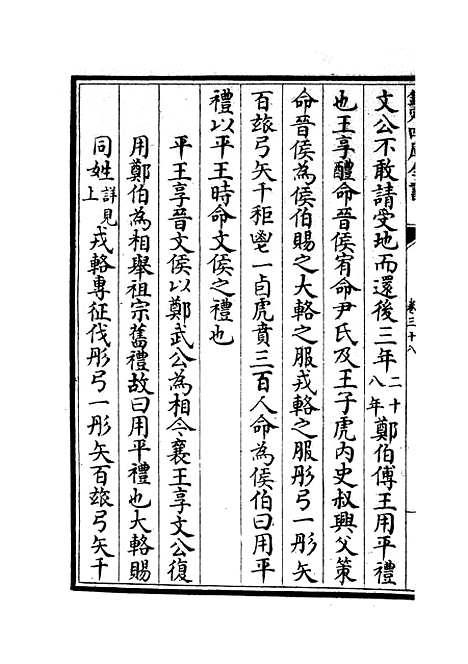 欽定四庫全書
卷三十八
文公不敢請受地而還後三年二十八年鄭伯傅王用平禮
也王享醴命晉侯宥命尹氏及王子虎內史叔興父策
命晉侯為侯伯賜之大輅之服戎輅之服彤弓一彤矢
百玈弓矢千秬鬯一卣虎賁三百人命為侯伯曰用平
禮以平王時命文侯之禮也
平王享晉文侯以鄭武公為相今襄王享文公復
用鄭伯為相舉祖宗舊禮故曰用平禮也大輅賜
同姓詳見上戎輅專征伐彤弓一彤矢百玈弓矢千